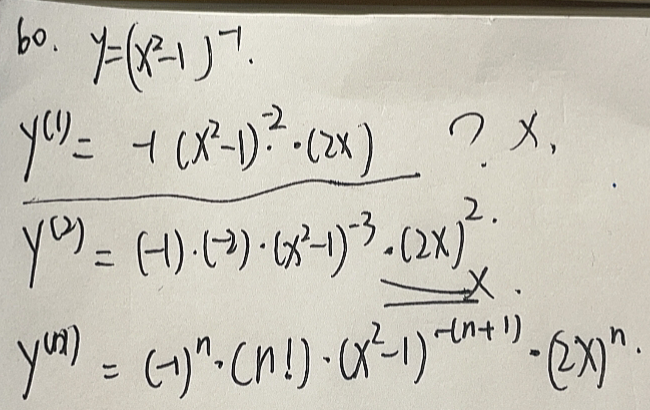 60. y=(x²-1)⁻¹.
y⁽¹⁾= -1 (x²-1)⁻². · (2x) ? x,
y⁽²⁾ = (-1)·(-2)·(x²-1)⁻³ · (2x)².
x.
y⁽ⁿ⁾ = (-1)ⁿ·(n!)·(x²-1)⁻⁽ⁿ⁺¹⁾·(2x)ⁿ.